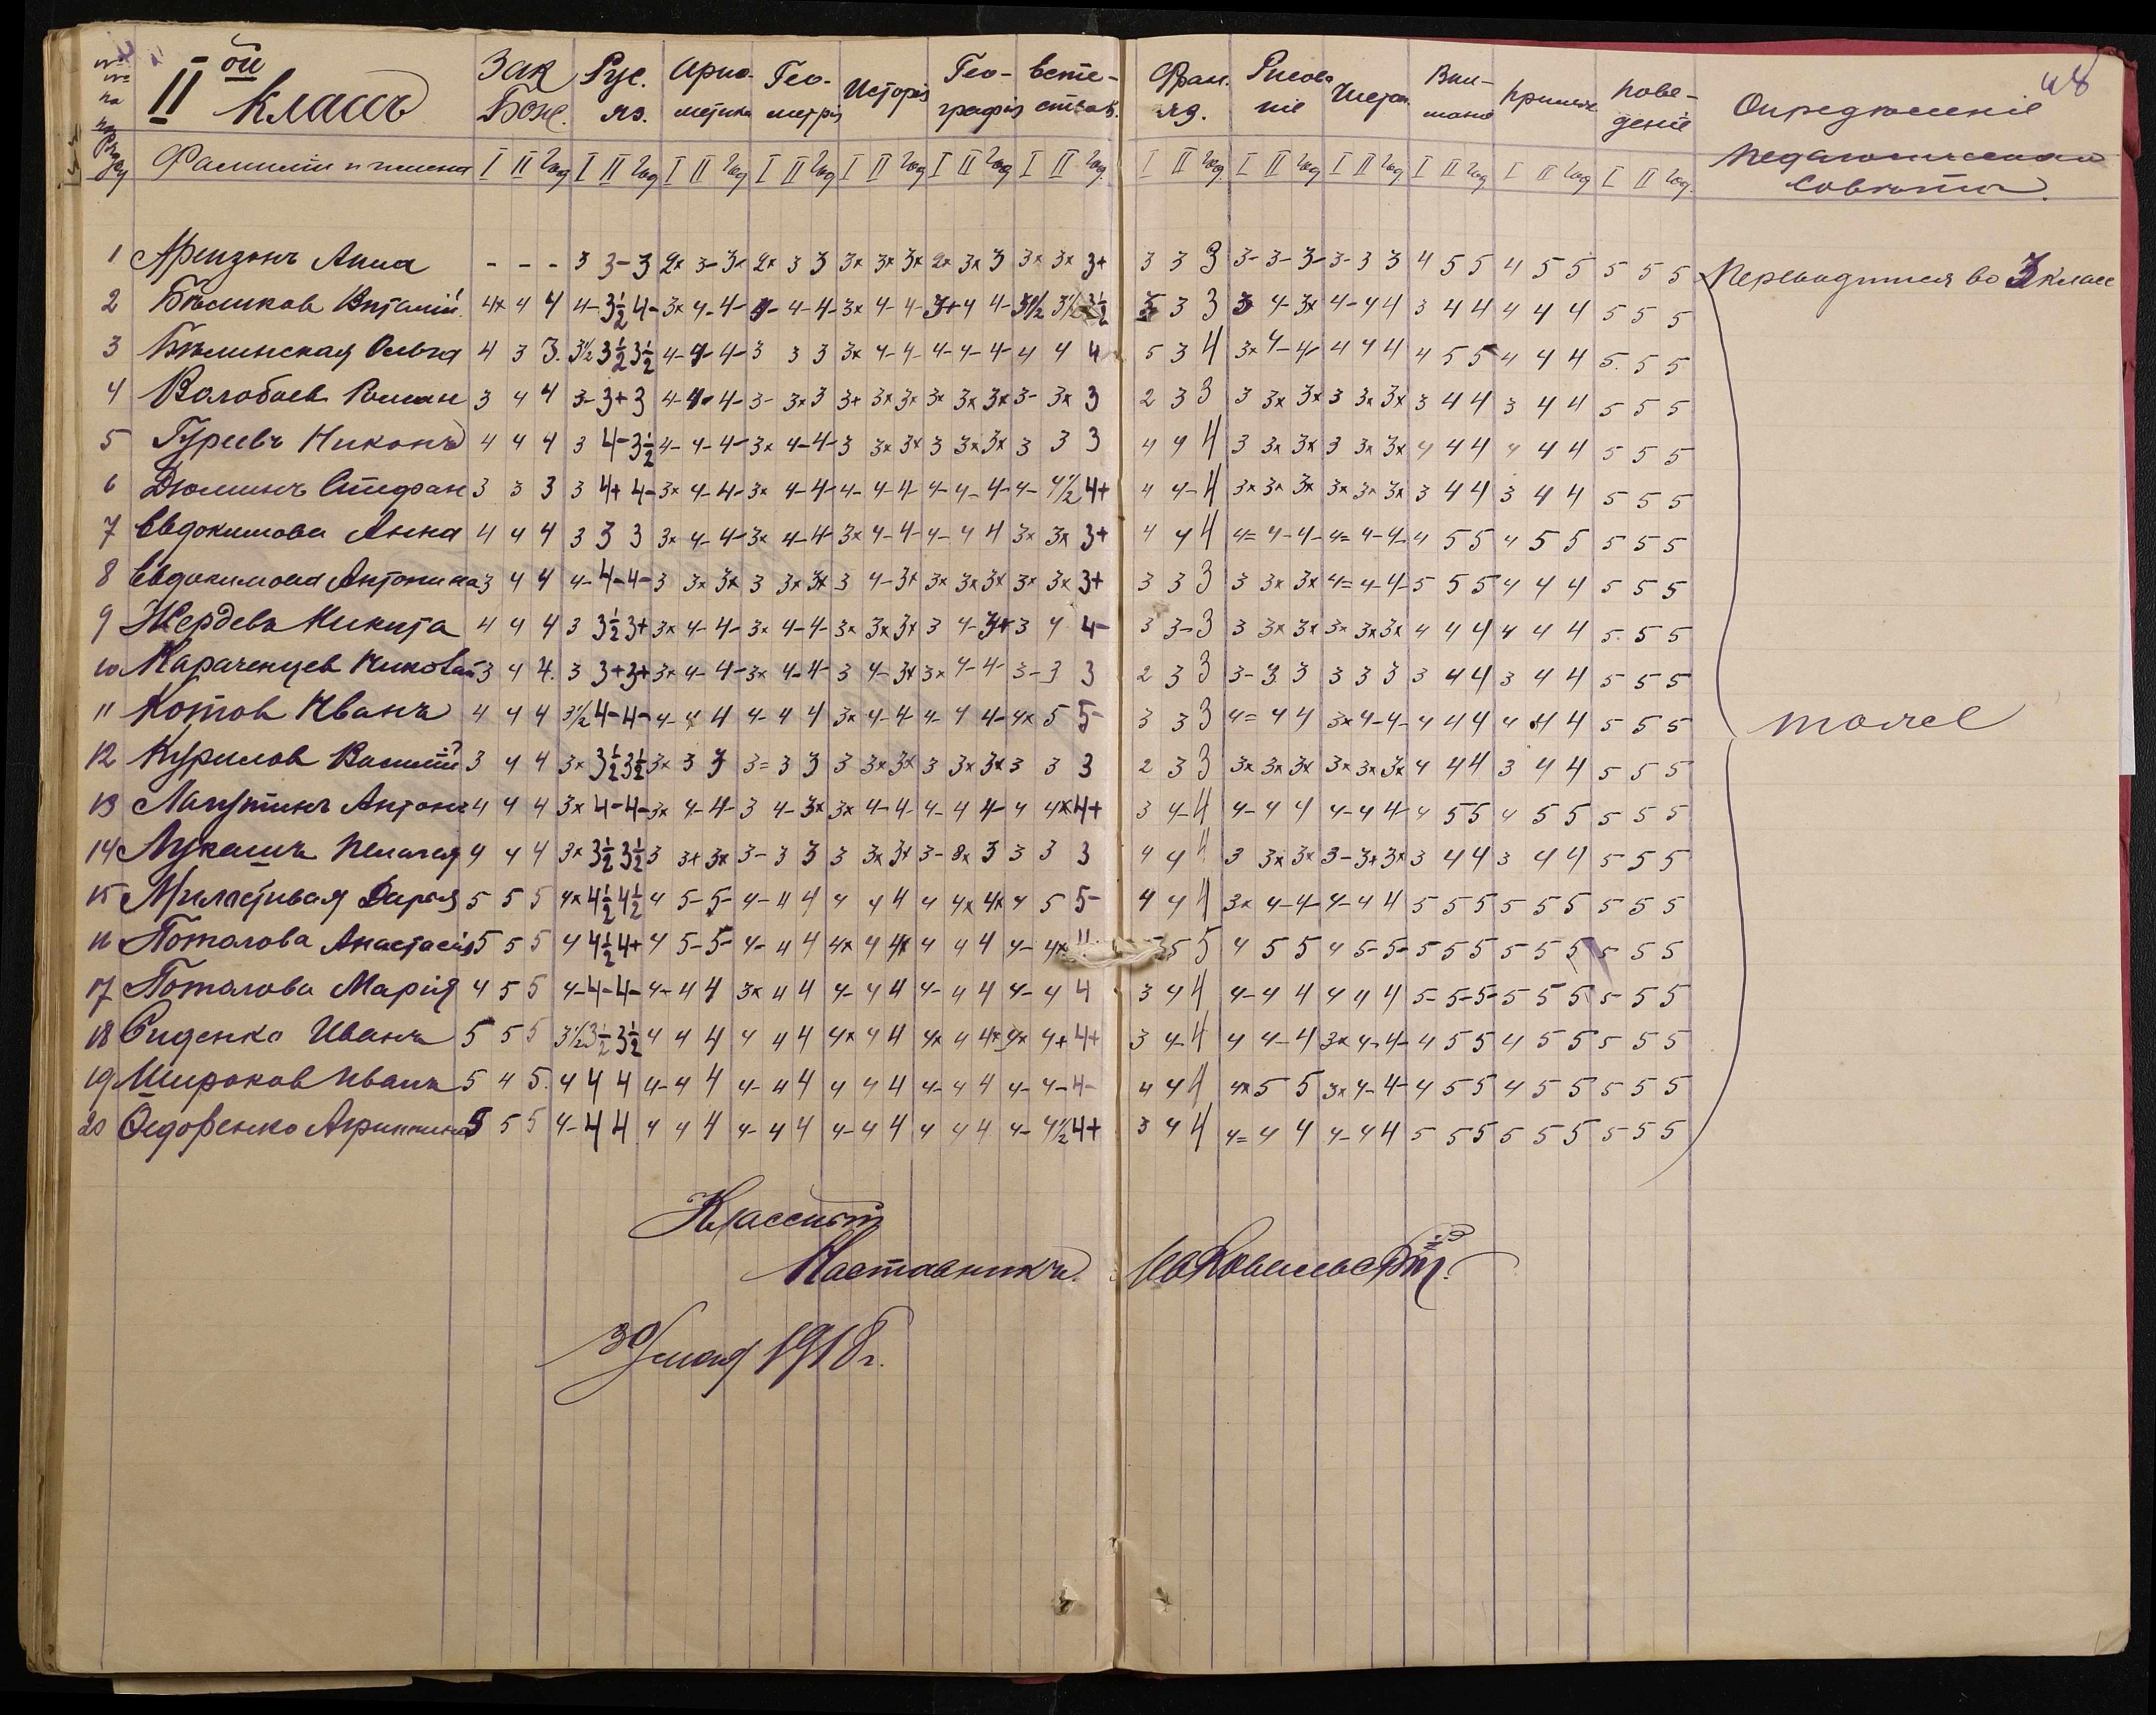 48
№№ по порядку
II ой классъ
Зак. Бож. Рус. яз. Ариө-метика Гео-метрія Исторія Гео-графія Есте-ствов. Фран. яз. Рисова-ніе Вни-маніе Прилеж. Пове-деніе Опредѣленіе
Фамиліи и имена I II год I II год I II год I II год I II год I II год I II год I II год I II год I II год I II год I II год I II год Педагогическаго Совѣта.
1 Анна - - - 3 3- 3 2+ 3- 3+ 2+ 3 3 3+ 3+ 3+ 2+ 3+ 3 3+ 3+ 3+ 3 3 3 3- 3- 3- 3- 3 3 4 5 5 4 5 5 5 5 5 Переводится во 3 класс
2 Бѣликов Виталій 4+ 4 4 4- 3½ 4- 3+ 4- 4- 4- 4- 3+ 4- 4- 3+ 4 4- 3½ 3½ 3½ 3 3 3 4- 3+ 4- 4 4 3 4 4 4 4 4 5 5 5
3 Бѣлинская Ольга 4 3 3. 3½ 3½ 3½ 4- 4- 4- 3 3 3 3+ 4- 4- 4- 4- 4- 4 4 4 5 3 4 3+ 4- 4- 4 4 4 4 5 5 4 4 4 5. 5 5
4 Роман 3 4 4 3- 3+ 3 4- 4- 4- 3- 3+ 3 3+ 3+ 3+ 3+ 3+ 3+ 3- 3+ 3 2 3 3 3 3+ 3+ 3 3+ 3+ 3 4 4 3 4 4 5 5 5
5 Гуревъ Никонъ 4 4 4 3 4- 3½ 4- 4- 4- 3+ 4- 4- 3 3+ 3+ 3 3+ 3+ 3 3 3 4 4 4 3 3+ 3+ 3 3+ 3+ 4 4 4 4 4 4 5 5 5
6 Дюминъ Стефан 3 3 3 3 4+ 4- 3+ 4- 4- 3+ 4- 4- 4- 4- 4- 4- 4- 4- 4- 4½ 4+ 4 4- 4 3+ 3+ 3+ 3+ 3+ 3+ 3 4 4 3 4 4 5 5 5
7 Евдокимова Анна 4 4 4 3 3 3 3+ 4- 4- 3+ 4- 4- 3+ 4- 4- 4- 4 4 3+ 3+ 3+ 4 4 4 4= 4- 4- 4= 4- 4- 4 5 5 4 5 5 5 5 5
8 Евдокимова Антонина 3 4 4 4- 4- 4- 3 3+ 3+ 3 3+ 3+ 3 4- 3+ 3+ 3+ 3+ 3+ 3+ 3+ 3 3 3 3 3+ 3+ 4= 4- 4- 5 5 5 4 4 4 5 5 5
9 Жердевъ Никита 4 4 4 3 3½ 3+ 3+ 4- 4- 3+ 4- 4- 3+ 3+ 3+ 3 4- 3+ 3 4 4- 3 3- 3 3 3+ 3+ 3+ 3+ 3+ 4 4 4 4 4 4 5. 5 5
10 Караченцев Николай 3 4 4. 3 3+ 3+ 3+ 4- 4- 3+ 4- 4- 3 4- 3+ 3+ 4- 4- 3- 3 3 2 3 3 3- 3 3 3 3 3 3 4 4 3 4 4 5 5 5
11 Котов Иванъ 4 4 4 3½ 4- 4- 4- 4 4 4- 4 4 3+ 4- 4- 4- 4 4- 4+ 5 5- 3 3 3 4= 4 4 3+ 4- 4- 4 4 4 4 4 4 5 5 5 тоже
12 Курилов Василій 3 4 4 3+ 3½ 3½ 3+ 3 3 3= 3 3 3 3+ 3+ 3 3+ 3+ 3 3 3 2 3 3 3+ 3+ 3+ 3+ 3+ 3+ 4 4 4 3 4 4 5 5 5
13 Лагутинъ Антонъ 4 4 4 3+ 4- 4- 3+ 4- 4- 3 4- 3+ 3+ 4- 4- 4- 4 4- 4 4+ 4+ 3 4- 4 4- 4 4 4- 4 4- 4 5 5 4 5 5 5 5 5
14 Лукашъ Пелагея 4 4 4 3+ 3½ 3½ 3 3+ 3+ 3- 3 3 3 3+ 3+ 3- 3+ 3 3 3 3 4 4 4 3 3+ 3+ 3- 3+ 3+ 3 4 4 3 4 4 5 5 5
15 Милостивая Дарья 5 5 5 4+ 4½ 4½ 4 5- 5- 4- 4 4 4 4 4 4 4+ 4+ 4 5 5- 4 4 4 3+ 4- 4- 4- 4 4 5 5 5 5 5 5 5 5 5
16 Поталова Анастасія 5 5 5 4 4½ 4+ 4 5- 5- 4- 4 4 4+ 4 4+ 4 4 4 4- 4+ 5 5 4 5 5 4 5- 5- 5 5 5 5 5 5 5 5 5
17 Поталова Марія 4 5 5 4- 4- 4- 4- 4 4 3+ 4 4 4- 4 4 4- 4 4 4- 4 4 3 4 4 4- 4 4 4 4 4 5- 5- 5- 5 5 5 5 5 5
18 Сиденко Иванъ 5 5 5 3½ 3½ 3½ 4 4 4 4 4 4 4+ 4 4 4+ 4 4+ 4+ 4+ 4+ 3 4- 4 4 4- 4 3+ 4- 4- 4 5 5 4 5 5 5 5 5
19 Широков Иванъ 5 4 5. 4 4 4 4- 4 4 4- 4 4 4 4 4 4- 4 4 4- 4- 4- 4 4 4 4+ 5 5 3+ 4- 4- 4 5 5 4 5 5 5 5 5
20 Ѳедоренко Агрипина 5 5 5 4- 4 4 4 4 4 4- 4 4 4- 4 4 4 4 4 4- 4½ 4+ 3 4 4 4= 4 4 4- 4 4 5 5 5 5 5 5 5 5 5
Классный
Наставникъ
30 мая 1918 г.